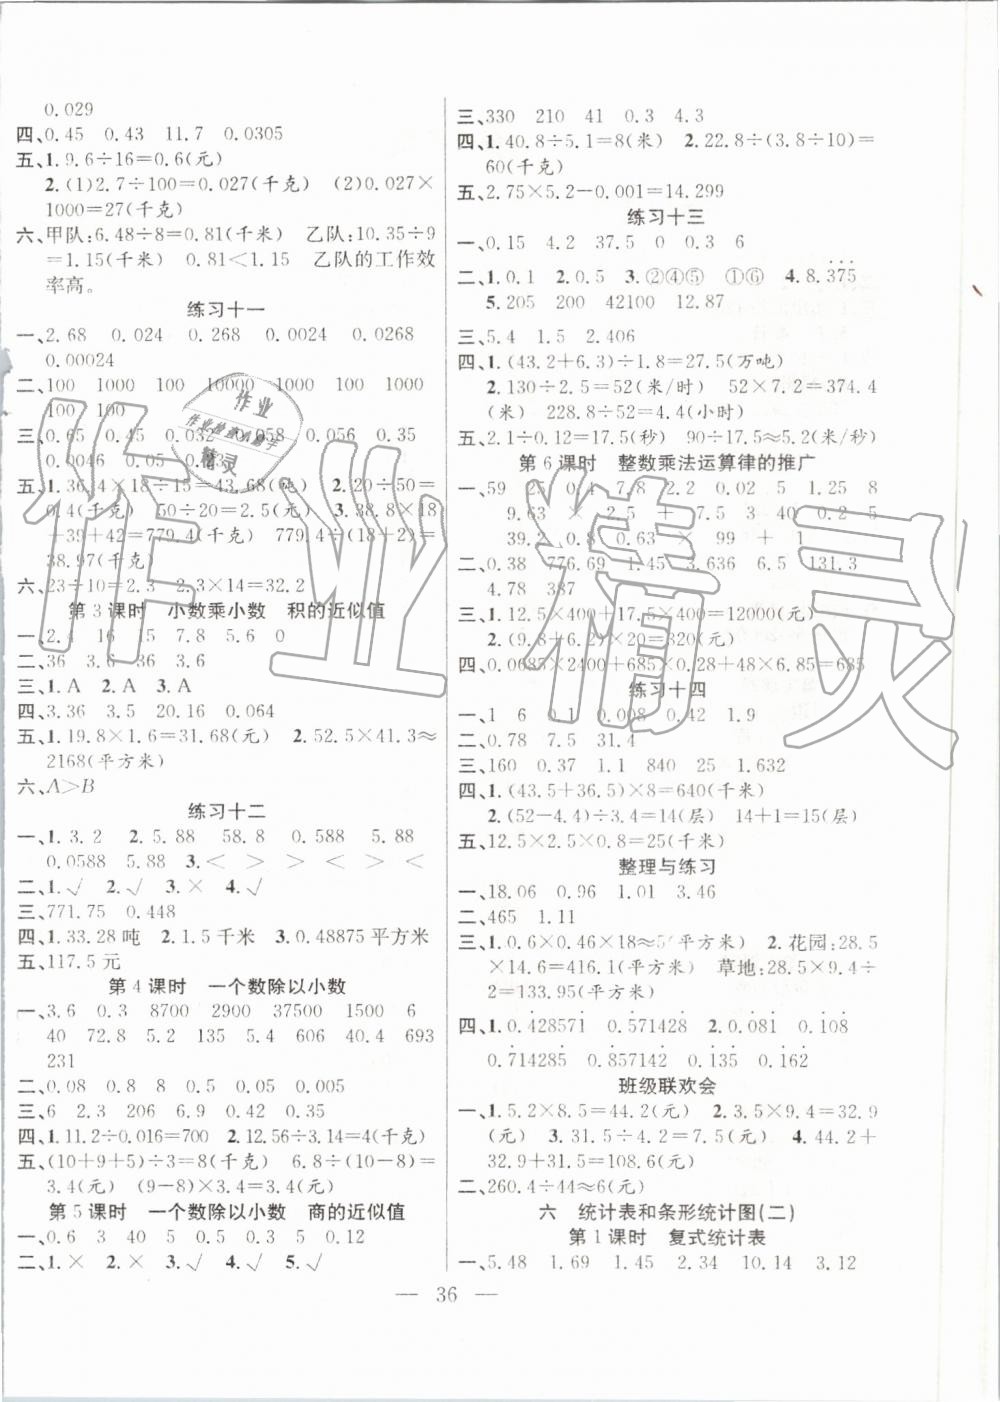 0.029
四、0.45 0.43 11.7 0.0305
五、1. 9.6÷16=0.6(元)
2. (1)2.7÷100=0.027(千克) (2)0.027×
1000=27(千克)
六、甲队:6.48÷8=0.81(千米) 乙队:10.35÷9
=1.15(千米) 0.81<1.15 乙队的工作效
率高。
练习十一
一、2.68 0.024 0.268 0.0024 0.0268
0.00024
二、100 1000 100 10000 1000 100 1000
100 100
三、0.65 0.45 0.032 0.058 0.056 0.35
0.0046 0.05
五、1. 36.4×18÷15=43.68(吨) 2. 20÷50=
0.4(千克) 50÷20=2.5(元) 3. 38.8×18
+39+42=779.4(千克) 779.4÷(18+2)=
38.97(千克)
六、23÷10=2.3 2.3×14=32.2
第3课时 小数乘小数 积的近似值
一、2.4 16 15 7.8 5.6 0
二、36 3.6 36 3.6
三、1. A 2. A 3. A
四、3.36 3.5 20.16 0.064
五、1. 19.8×1.6=31.68(元) 2. 52.5×41.3≈
2168(平方米)
六、A>B
练习十二
一、1. 3.2 2. 5.88 58.8 0.0588 5.88
0.0588 5.88 3. < > > < > <
二、1. √ 2. √ 3. × 4. √
三、771.75 0.448
四、1. 33.28吨 2. 1.5千米 3. 0.48875平方米
五、117.5元
第4课时 一个数除以小数
一、3.6 0.3 8700 2900 37500 1500 6
40 72.8 5.2 135 504 606 40.4 693
231
二、0.08 0.8 8 0.5 0.05 0.005
三、6 2.3 206 6.9 0.42 0.35
四、1. 11.2÷0.016=700 2. 12.56÷3.14=4(千克)
五、(10+9+5)÷3=8(千克) 6.8÷(10-8)=
3.4(元) (9-8)×3.4=3.4(元)
第5课时 一个数除以小数 商的近似值
一、0.6 3 40 5 0.5 0.3 5 0.12
二、1. × 2. × 3. √ 4. √ 5. √
三、330 210 41 0.3 4.3
四、1. 40.8÷5.1=8(米) 2. 22.8÷(3.8÷10)=
60(千克)
五、2.75×5.2-0.001=14.299
练习十三
一、0.15 4.2 37.5 0 0.3 6
二、1. 0.1 2. 0.5 3. ②④⑤ ①⑥ 4. 8.3̇7̇5̇
5. 205 200 42100 12.87
三、5.4 1.5 2.406
四、1. (43.2+6.3)÷1.8=27.5(万吨)
2. 130÷2.5=52(米/时) 52×7.2=374.4
(米) 228.8÷52=4.4(小时)
五、2.1÷0.12=17.5(秒) 90÷17.5≈5.2(米)
第6课时 整数乘法运算律的推广
一、59 25 0.4 7.8 2.2 0.02 5 1.25 8
9.63 × 2.5 + 7.5 3 40 0.2 5
39.2 0.8 0.63 × 99 + 1
二、0.38 776.69 1.45 3.636 6.5 131.3
4.78 387
三、1. 12.5×400+17.5×400=12000(元)
2. (9.8+6.2)×20=320(元)
四、0.0685×2400+685×0.28+48×6.85=685
练习十四
一、1 6 0.1 0.008 0.42 1.9
二、0.78 7.5 31.4
三、160 0.37 1.1 840 25 1.632
四、1. (43.5+36.5)×8=640(千米)
2. (52-4.4)÷3.4=14(层) 14+1=15(层)
五、12.5×2.5×0.8=25(千米)
整理与练习
一、18.06 0.96 1.01 3.46
二、465 1.11
三、1. 0.6×0.46×18≈5(平方米) 2. 花园:28.5
×14.6=416.1(平方米) 草地:28.5×9.4÷
2=133.95(平方米)
四、1. 0.4̇28571̇ 0.5̇71428̇ 2. 0.0̇81̇ 0.1̇08̇
0.7̇14285̇ 0.8̇57142̇ 0.1̇35̇ 0.1̇62̇
班级联欢会
一、1. 5.2×8.5=44.2(元) 2. 3.5×9.4=32.9
(元) 3. 31.5÷4.2=7.5(元) 4. 44.2+
32.9+31.5=108.6(元)
二、260.4÷44≈6(元)
六 统计表和条形统计图(二)
第1课时 复式统计表
一、5.48 1.69 1.45 2.34 10.14 3.12
— 36 —